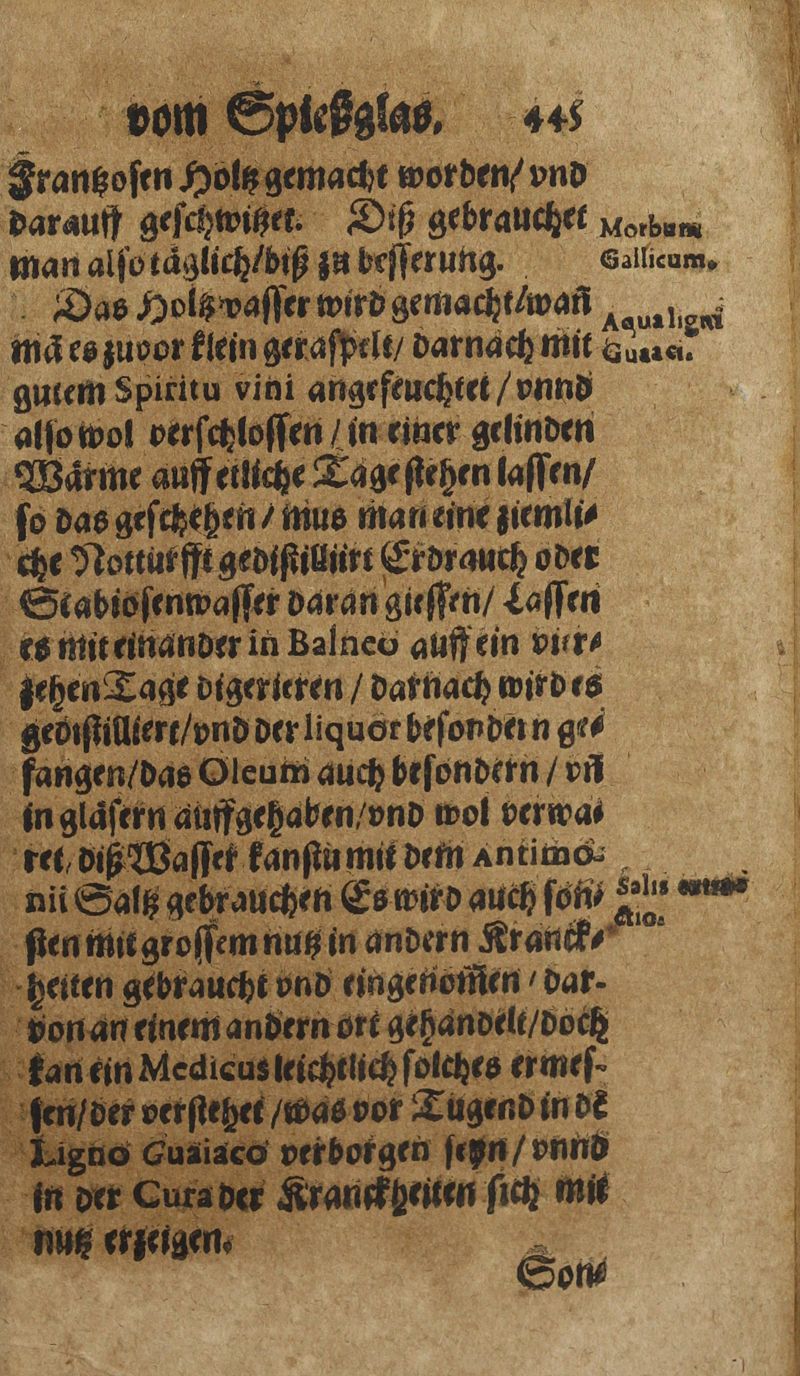 vom Spießglas. 445
Frantzosen Holtz gemacht worden/ vnd
darauff geschwitzet. Diß gebrauchet
Morbum
man also täglich/biß zu besserung.
Gallicum.
Das Holtzwasser wird gemacht/wañ
Aqua ligni
mã es zuvor klein geraspelt/ darnach mit
Guaaci.
gutem Spiritu vini angefeuchtet / vnnd
also wol verschlossen / in einer gelinden
Wärme auff etliche Tage stehen lassen/
so das geschehen / mus man eine ziemli-
che Notturfft gedistilliirt Erdrauch oder
Scabiosenwasser daran giessen/ Lassen
es mit einander in Balneo auff ein vier-
zehen Tage digerieren / darnach wird es
gedistilliert/vnd der liquor besondern ge-
fangen/das Oleum auch besondern / vñ
in gläsern auffgehaben/vnd wol verwa-
ret, diß Wasser kanstu mit dem Antimo-
nii Saltz gebrauchen Es wird auch son-
Salis
sten mit grossem nutz in andern Kranck-
heiten gebraucht vnd eingenom̃en / dar-
von an einem andern ort gehandelt/doch
kan ein Medicus leichtlich solches ermes-
sen/der verstehet /was vor Tugend in dẽ
Ligno Guaiaco verborgen seyn / vnnd
in der Cura der Kranckheiten sich mit
nutz erzeigen.
Son-